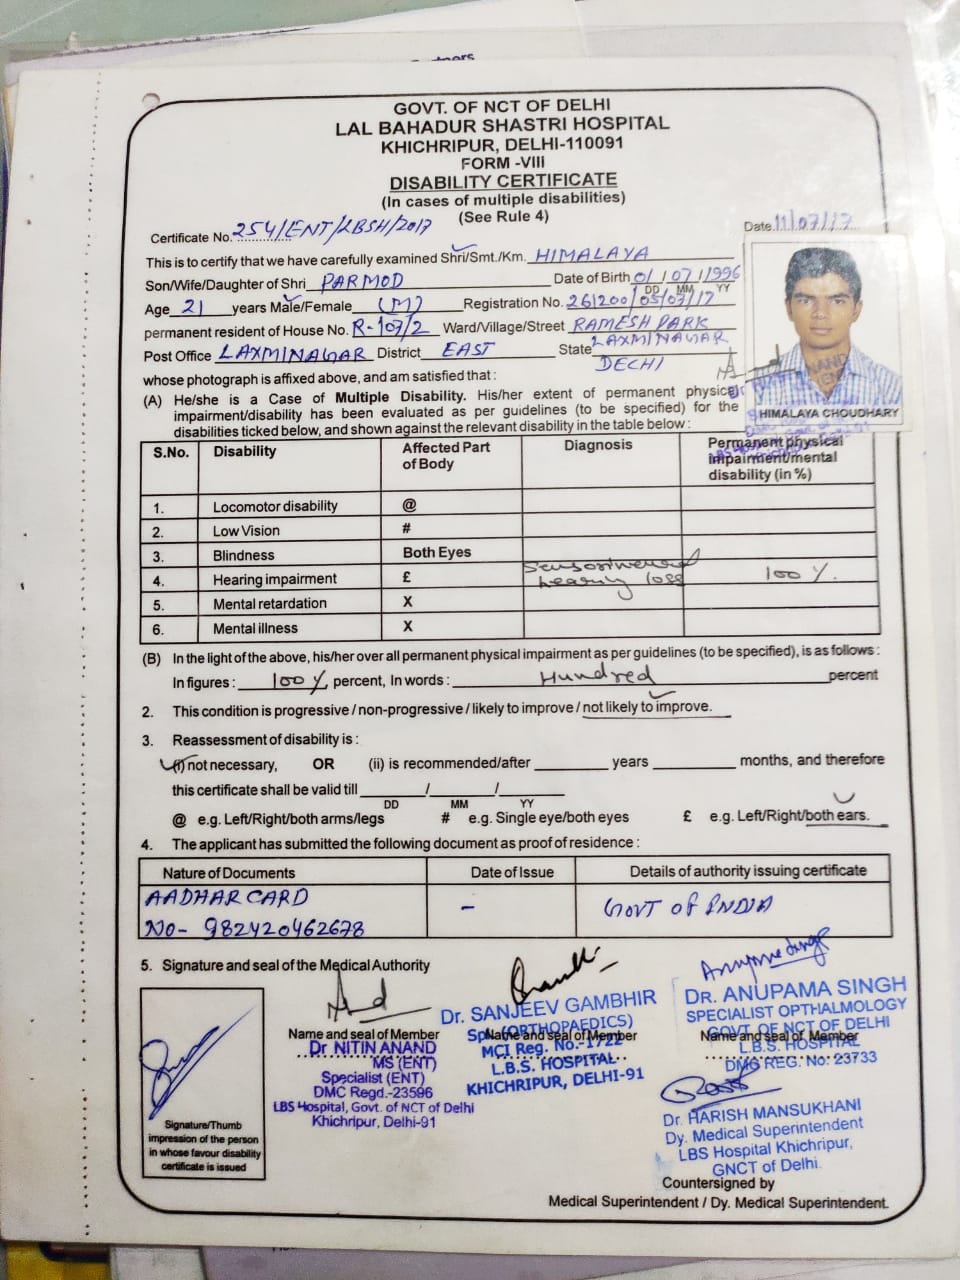 GOVT. OF NCT OF DELHI
LAL BAHADUR SHASTRI HOSPITAL
KHICHRIPUR, DELHI-110091
FORM -VIII
DISABILITY CERTIFICATE
(In cases of multiple disabilities)
(See Rule 4)
Certificate No. 254/ENT/LBSH/2017 Date 11/07/17
This is to certify that we have carefully examined Shri/Smt./Km. HIMALAYA
Son/Wife/Daughter of Shri PARMOD Date of Birth 01/07/1996
DD MM YY
Age 21 years Male/Female (M) Registration No. 261200/05/07/17
permanent resident of House No. R-107/2 Ward/Village/Street RAMESH PARK
LAXMINAGAR
Post Office LAXMINAGAR District EAST State
DECHI
whose photograph is affixed above, and am satisfied that :
HIMALAYA CHOUDHARY
(A) He/she is a Case of Multiple Disability. His/her extent of permanent physical
impairment/disability has been evaluated as per guidelines (to be specified) for the
disabilities ticked below, and shown against the relevant disability in the table below :
S.No. Disability Affected Part of Body Diagnosis Permanent physical impairment/mental disability (in %)
1. Locomotor disability @
2. Low Vision #
3. Blindness Both Eyes
4. Hearing impairment £ Sensorineural hearing loss 100 %.
5. Mental retardation X
6. Mental illness X
(B) In the light of the above, his/her over all permanent physical impairment as per guidelines (to be specified), is as follows :
In figures : 100 % percent, In words : Hundred percent
2. This condition is progressive / non-progressive / likely to improve / not likely to improve.
3. Reassessment of disability is :
(i) not necessary, OR (ii) is recommended/after years months, and therefore
this certificate shall be valid till / /
DD MM YY
@ e.g. Left/Right/both arms/legs # e.g. Single eye/both eyes £ e.g. Left/Right/both ears.
4. The applicant has submitted the following document as proof of residence :
Nature of Documents Date of Issue Details of authority issuing certificate
AADHAR CARD
NO- 982420462678 - GOVT OF INDIA
5. Signature and seal of the Medical Authority
Name and seal of Member
Dr NITIN ANAND
MS (ENT)
Specialist (ENT)
DMC Regd.-23596
LBS Hospital, Govt. of NCT of Delhi
Khichripur, Delhi-91
Dr. SANJEEV GAMBHIR
(ORTHOPAEDICS)
Name and seal of Member
MCI Reg. No.-1722
L.B.S. HOSPITAL
KHICHRIPUR, DELHI-91
DR. ANUPAMA SINGH
SPECIALIST OPTHALMOLOGY
GOVT. OF NCT OF DELHI
Name and seal of Member
L.B.S. HOSPITAL
DMC REG. No: 23733
Dr. HARISH MANSUKHANI
Dy. Medical Superintendent
LBS Hospital Khichripur,
GNCT of Delhi.
Signature/Thumb
impression of the person
in whose favour disability
certificate is issued
Countersigned by
Medical Superintendent / Dy. Medical Superintendent.